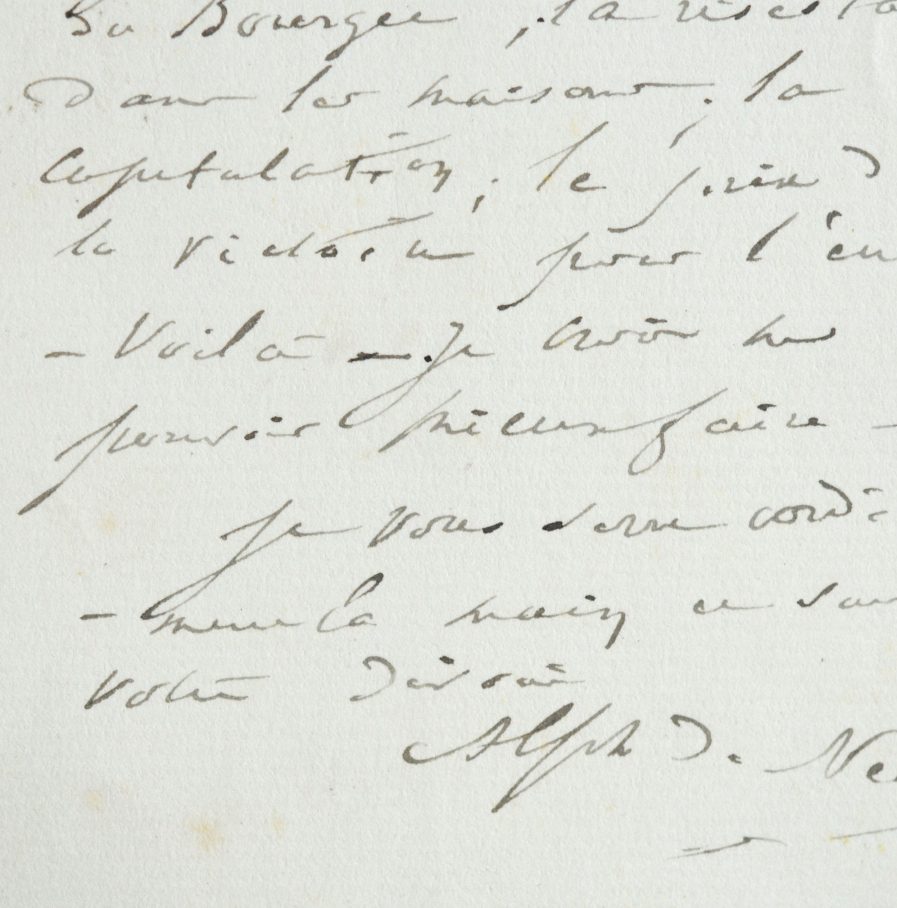 du Bourget ; la résista
dans les maisons ; la
Capitulation ; le prix d
la victoire pour l'en
- Voilà - Je crois ne
pouvoir mieux faire -
Je vous serre cordia
- ment la main et suis
votre dévoué
Alph d. Ne